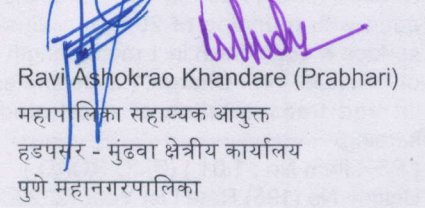 Ravi Ashokrao Khandare (Prabhari)
महापालिका सहाय्यक आयुक्त
हडपसर - मुंढवा क्षेत्रीय कार्यालय
पुणे महानगरपालिका